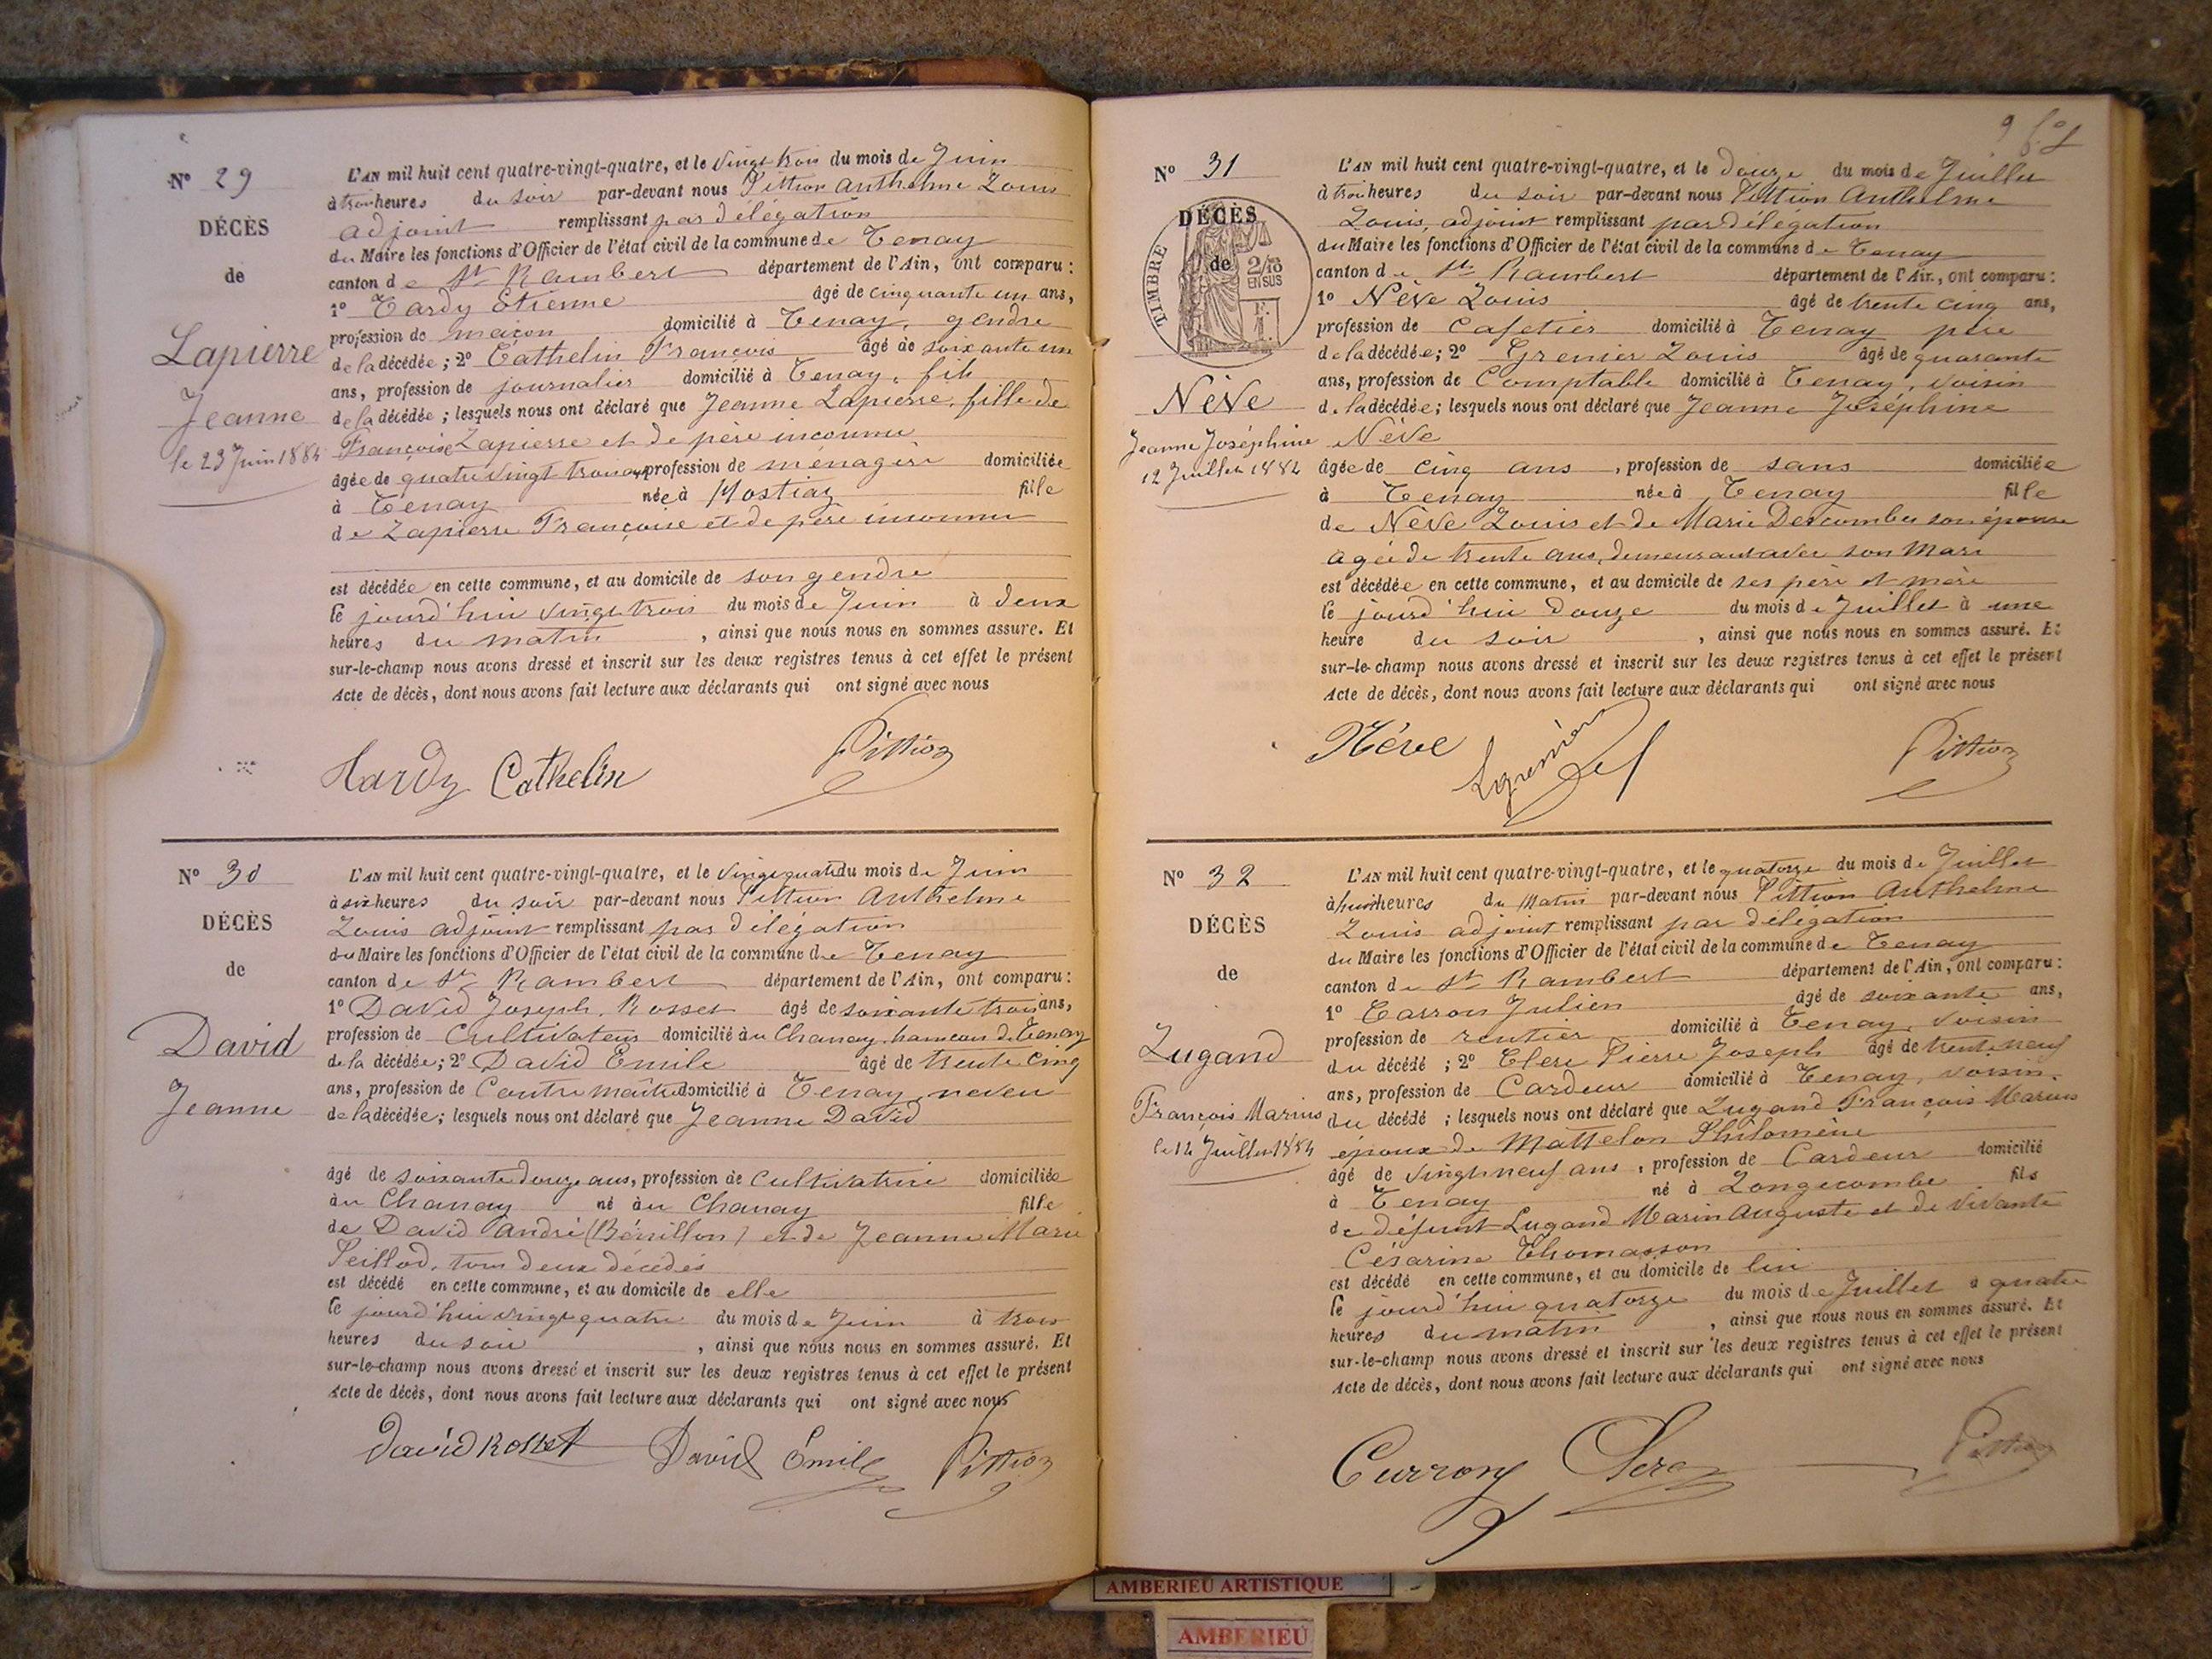 Nº 29
DÉCÈS
de
Lapierre
Jeanne
le 23 Juin 1884
L'AN mil huit cent quatre-vingt-quatre, et le vingt trois du mois de Juin
à trois heures du soir par-devant nous Pittion Anthelme Louis
adjoint remplissant par délégation
du Maire les fonctions d'Officier de l'état civil de la commune de Tenay
canton de St Rambert département de l'Ain, ont comparu :
1º Tardy Etienne âgé de cinquante un ans,
profession de maçon domicilié à Tenay, gendre
de la décédée ; 2º Cathelin François âgé de soixante un
ans, profession de journalier domicilié à Tenay, fils
de la décédée ; lesquels nous ont déclaré que Jeanne Lapierre, fille de
Françoise Lapierre et de père inconnu
âgée de quatre vingt trois ans profession de ménagère domiciliée
à Tenay née à Hostiaz fille
de Lapierre Françoise et de père inconnu
est décédée en cette commune, et au domicile de son gendre
le jourd'hui vingt trois du mois de Juin à deux
heures du matin, ainsi que nous nous en sommes assuré. Et
sur-le-champ nous avons dressé et inscrit sur les deux registres tenus à cet effet le présent
Acte de décès, dont nous avons fait lecture aux déclarants qui ont signé avec nous
Hardy Cathelin Pittion
Nº 30
DÉCÈS
de
David
Jeanne
L'AN mil huit cent quatre-vingt-quatre, et le vingt quatre du mois de Juin
à six heures du soir par-devant nous Pittion Anthelme
Louis adjoint remplissant par délégation
du Maire les fonctions d'Officier de l'état civil de la commune de Tenay
canton de St Rambert département de l'Ain, ont comparu :
1º David Joseph, Rosset âgé de soixante trois ans,
profession de Cultivateur domicilié au Chanay, hameau de Tenay
de la décédée ; 2º David Emile âgé de trente cinq
ans, profession de Contre maître domicilié à Tenay neveu
de la décédée ; lesquels nous ont déclaré que Jeanne David
âgé de soixante douze ans, profession de Cultivatrice domiciliée
au Chanay né au Chanay fille
de David André (Bénillon) et de Jeanne Marie
Peillod, tous deux décédés
est décédé en cette commune, et au domicile de elle
le jourd'hui vingt quatre du mois de Juin à trois
heures du soir, ainsi que nous nous en sommes assuré. Et
sur-le-champ nous avons dressé et inscrit sur les deux registres tenus à cet effet le présent
Acte de décès, dont nous avons fait lecture aux déclarants qui ont signé avec nous
David Rosset David Emile Pittion
9
Nº 31
DÉCÈS
de
TIMBRE
2/10
EN SUS
Nève
Jeanne Joséphine
12 Juillet 1884
L'AN mil huit cent quatre-vingt-quatre, et le Douze du mois de Juillet
à trois heures du soir par-devant nous Pittion Anthelme
Louis, adjoint remplissant par délégation
du Maire les fonctions d'Officier de l'état civil de la commune de Tenay
canton de St Rambert département de l'Ain, ont comparu :
1º Nève Louis âgé de trente cinq ans,
profession de Cafetier domicilié à Tenay père
de la décédée ; 2º Grenier Louis âgé de quarante
ans, profession de Comptable domicilié à Tenay, voisin
de la décédée ; lesquels nous ont déclaré que Jeanne Joséphine
Nève
âgée de cinq ans, profession de sans domiciliée
à Tenay née à Tenay fille
de Nève Louis et de Marie Descombes son épouse
agée de trente ans, demeurant avec son Mari
est décédée en cette commune, et au domicile de ses père et mère
le jourd'hui douze du mois de Juillet à une
heure du soir, ainsi que nous nous en sommes assuré. Et
sur-le-champ nous avons dressé et inscrit sur les deux registres tenus à cet effet le présent
Acte de décès, dont nous avons fait lecture aux déclarants qui ont signé avec nous
Nève Lgrenier Pittion
Nº 32
DÉCÈS
de
Lugand
François Marius
le 14 Juillet 1884
L'AN mil huit cent quatre-vingt-quatre, et le quatorze du mois de Juillet
à huit heures du Matin par-devant nous Pittion Anthelme
Louis adjoint remplissant par délégation
du Maire les fonctions d'Officier de l'état civil de la commune de Tenay
canton de St Rambert département de l'Ain, ont comparu :
1º Carron Julien âgé de soixante ans,
profession de rentier domicilié à Tenay, voisin
du décédé ; 2º Clere Pierre Joseph âgé de trente neuf
ans, profession de Cardeur domicilié à Tenay, voisin.
du décédé ; lesquels nous ont déclaré que Lugand François Marius
époux de Mattelon Philomène
âgé de vingt neuf ans, profession de Cardeur domicilié
à Tenay né à Longecombe fils
de défunt Lugand Marin Auguste et de vivante
Césarine Thomasson
est décédé en cette commune, et au domicile de lui
le jourd'hui quatorze du mois de Juillet à quatre
heures du matin, ainsi que nous nous en sommes assuré. Et
sur-le-champ nous avons dressé et inscrit sur les deux registres tenus à cet effet le présent
Acte de décès, dont nous avons fait lecture aux déclarants qui ont signé avec nous
Curron Clere Pittion
AMBERIEU ARTISTIQUE
AMBERIEU